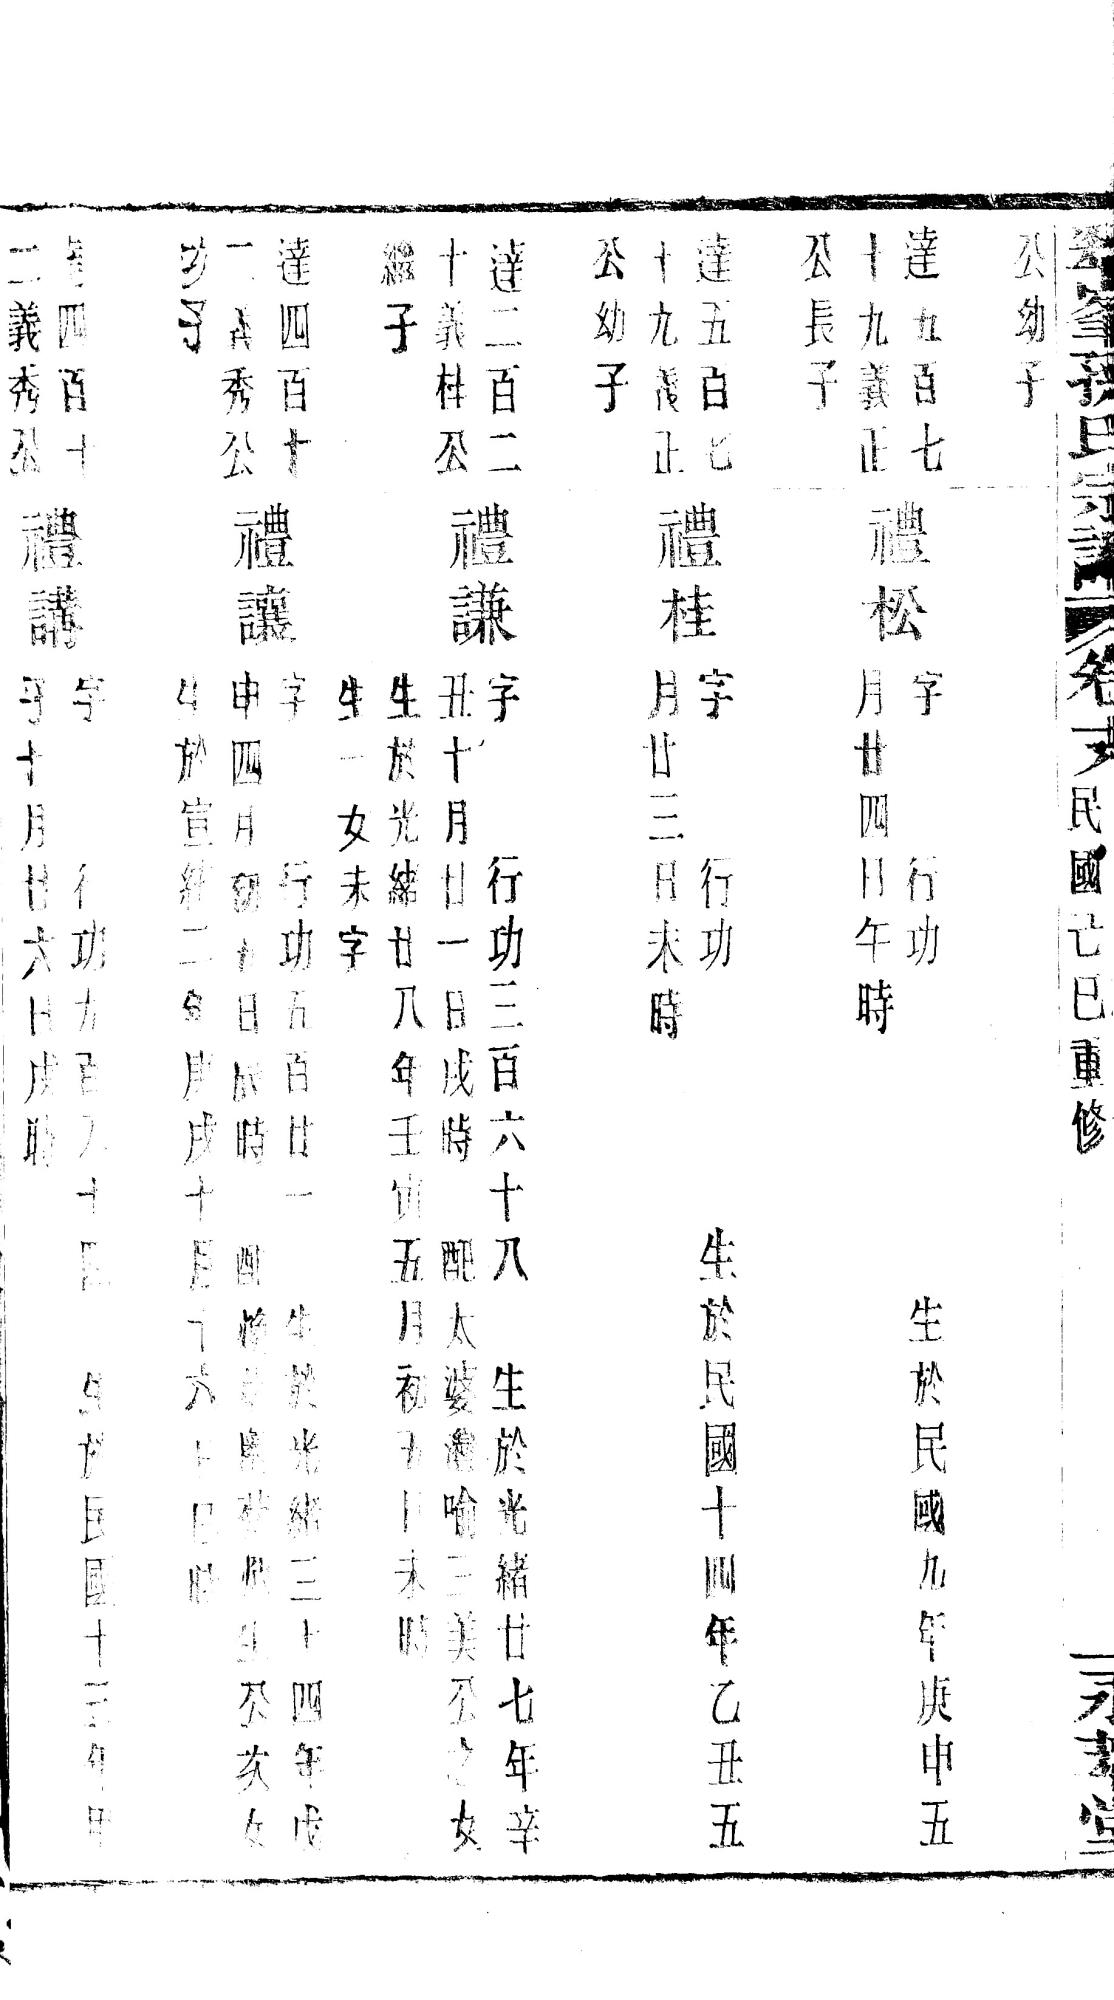 孫氏宗譜 卷 民國己巳重修
公幼子
達九百七
十九義正
公長子
禮松
字 行功 生於民國九年庚申五
月廿四日午時
達五百七
十九義正
公幼子
禮桂
字 行功 生於民國十四年乙丑五
月廿三日未時
達二百二
十義桂公
繼子
禮謙
字 行功三百六十八 生於光緒廿七年辛
丑十月廿一日戌時 配太婆 喻三美公之女
生於光緒廿八年壬寅五月初 日未時
生一女未字
達四百十
二義秀公
幼子
禮讓
字 行功五百廿一 生於光緒三十四年戊
申四月初九日辰時 配 公 女
生於宣統二年庚戌十月十六 日 時
達四百十
二義秀公
禮講
字 行功九百八十四 生於民國十三年甲
子十月廿六日戌時